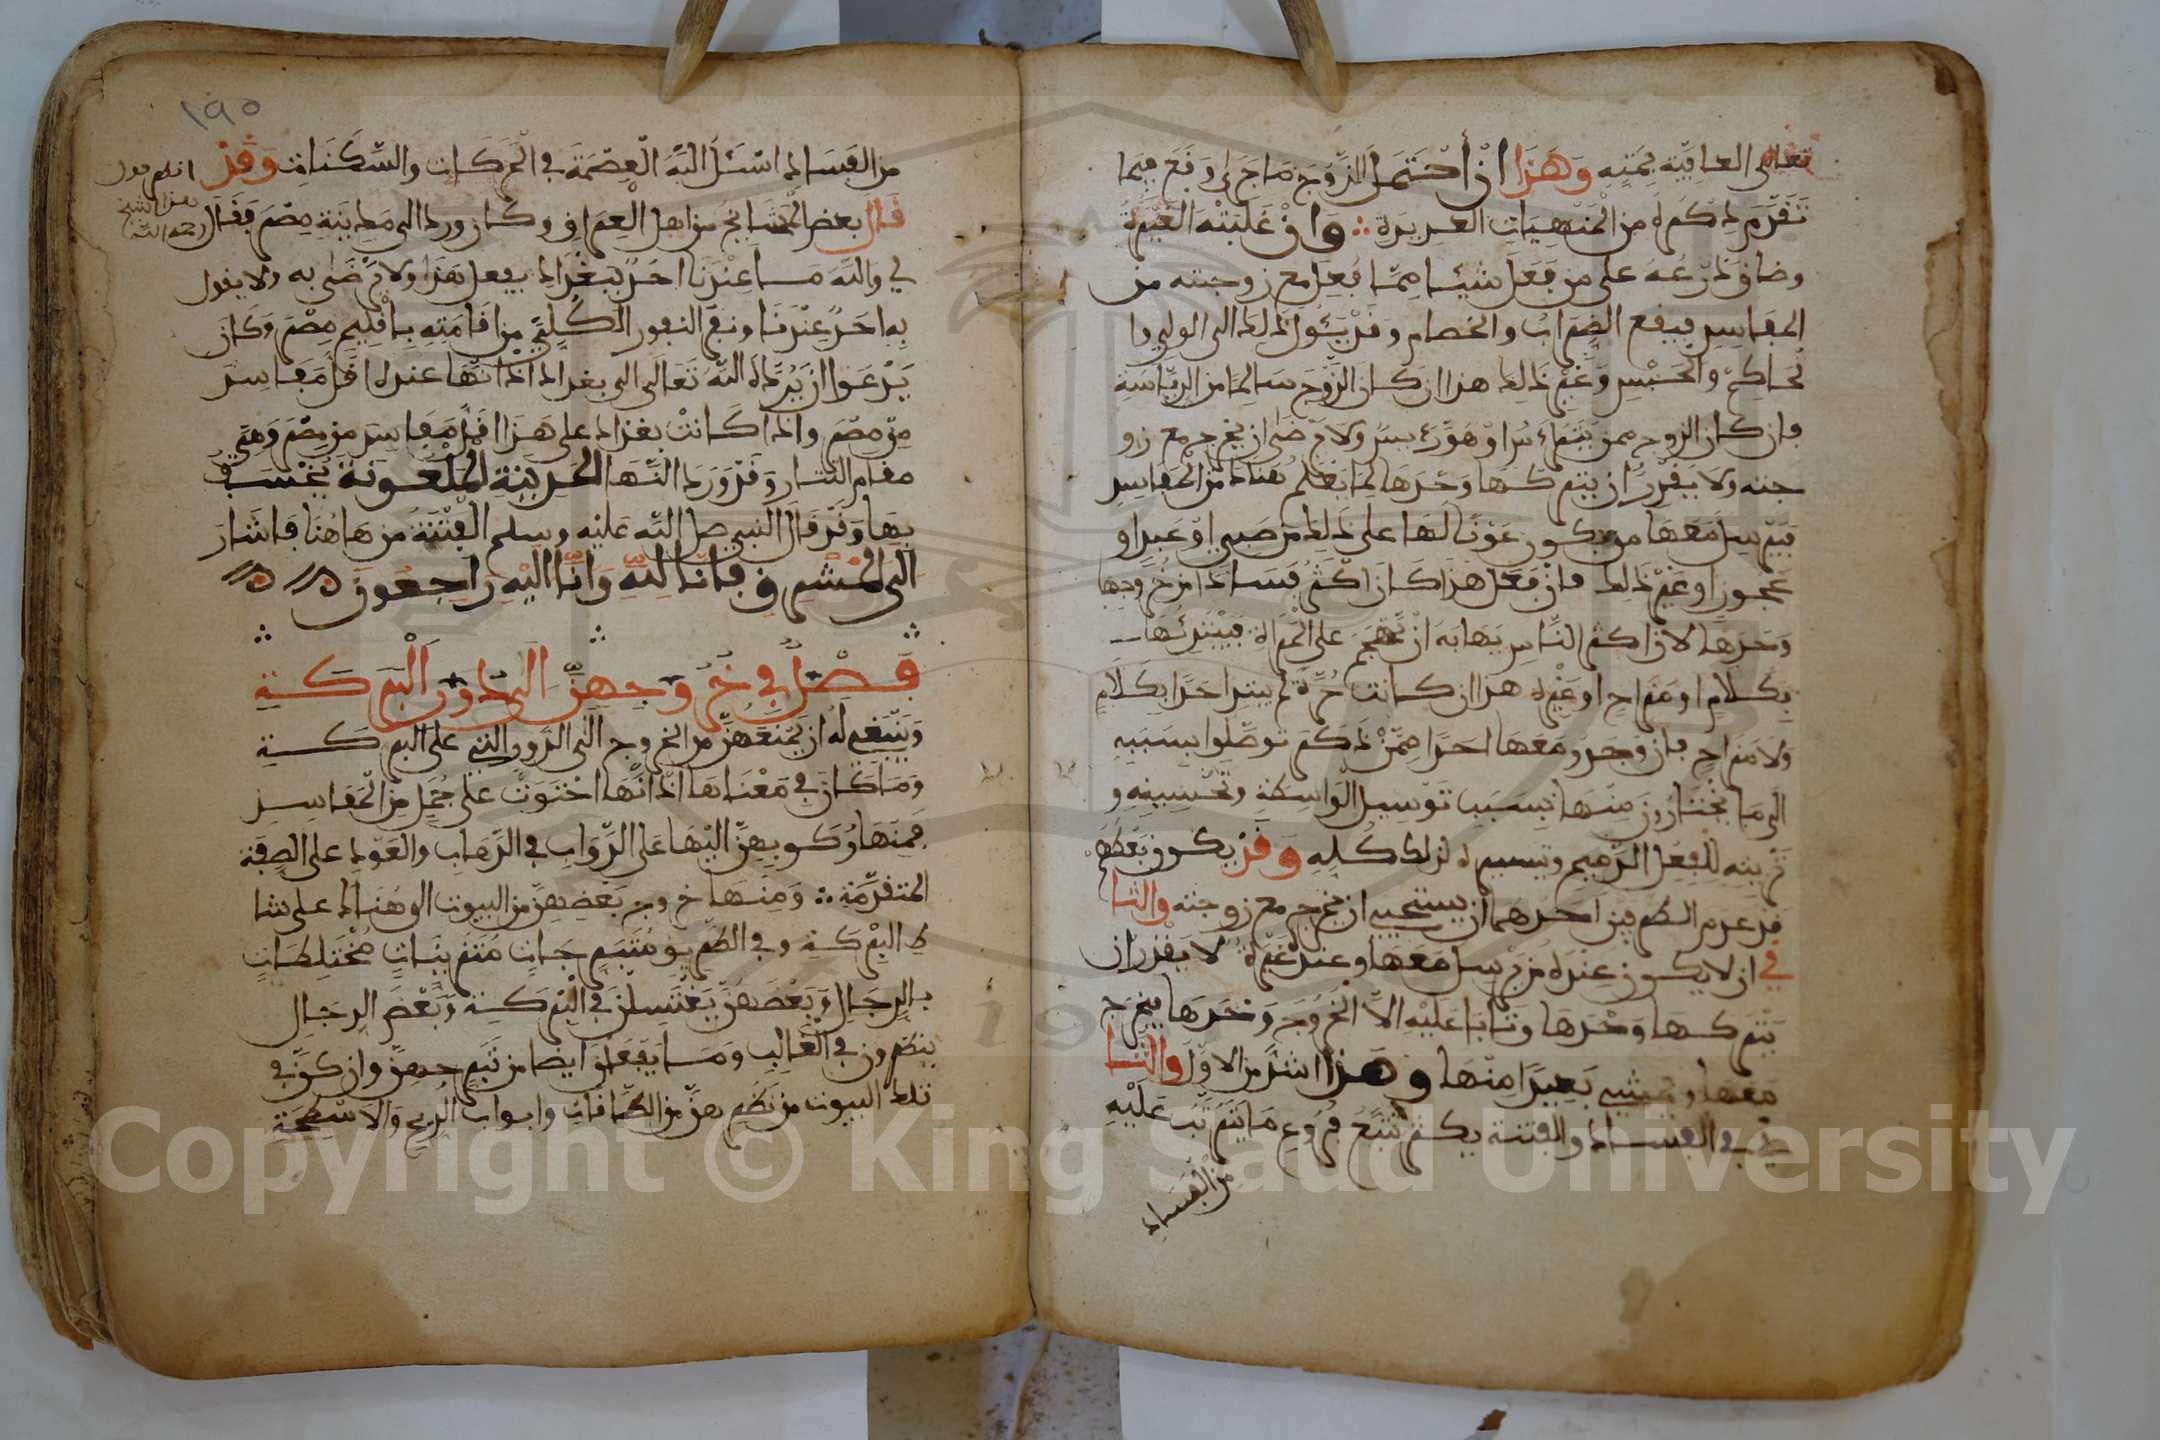 تعالى العافية بمنه وهذا ان احتمل الزوج ما جرى وقع فيما
تقدم ذكره من المنهيات العديدة ∴ وان غلبته الغيرة
وضاق ذرعه على من فعل شيئا مما فعل مع زوجته من
المفاسد فيقع الضراب والخصام وقد يئول ذلك الى الوالي وا
لحاكم والحبس وغير ذلك هذا ان كان الزوج سالما من الرياسة
فان كان الزوج ممن يتراس او هو رئيس ولا يرضى ان يخرج مع زو
جته ولا يقدر ان يتركها وحدها لما يعلم هناك من المفاسد
فيرسل معها من يكون عونا لها على ذلك من صبي او عبد او
عجوز او غير ذلك فان فعل هذا كان اكثر فسادا من خروجها
وحدها لان اكثر الناس يهابه ان يهجم على المراة فيبتدئها
بكلام او مزاح او غيره هذا ان كانت حرة لم يبتدا احدا بكلام
ولا مزاح فان وجدو معها احدا ممن ذكر توصلوا بسببه
الى ما يختارون منها بسبب توسيل الواسطة وتحسينه و
تزيينه للفعل الذميم وتيسيره لذلك كله وقد يكون بعضهم
قد عدم الطريقين احدهما ان يستحيي ان يخرج مع زوجته والثا
ني ان لا يكون عنده من يرسل معها وعنده غيرة لا يقدر ان
يتركها وحدها وتابا عليه الا الخروج وحدها فيخرج
معها ويمشي بعيدا منها وهذا اشد من الاول والثا
ني في الفساد والفتنة يكثر تتبع فروع ما يترتب عليه
من الفساد
١٩٥
من الفساد اسئل الله العصمة في الحركات والسكنات وقد
قال بعض المشايخ من اهل العراق وكان ورد الى مدينة مصر فقال
رحمه الله
لي والله ما عندنا احد ببغداد يفعل هذا ولا يرضى به ولا يقول
به احد عندنا ونفر النفور الكلي من اقامته باقليم مصر وكان
يدعوا ان يرده الله تعالى الى بغداد اذ انها عنده اقل مفاسد
من مصر واذا كانت بغداد على هذا اقل مفاسد من مصر وهي
مقام التتار وقد ورد انها المدينة الملعونة يخسف
بها وقد قال النبي صلى الله عليه وسلم الفتنة من هاهنا فاشار
الى المشرق فانا لله وانا اليه راجعون
فصل في خروجهن الى دور البركة
وينبغي له ان يمنعهن من الخروج الى الدور التي على البركة
وما كان في معناها اذ انها احتوت على جمل من المفاسد
فمنها ركوبهن اليها على الدواب في الذهاب والعود على الصفة
المتقدمة ∴ ومنها خروج بعضهن من البيوت الى هناك على شا
طئ البركة وفي الطريق متبرجات متزينات مختلطات
بالرجال وبعضهن يغتسلن في البركة وبعض الرجال
ينظرون في الغالب وما يفعلن ايضا من تبرجهن وان كن في
تلك البيوت من نظرهن من الطاقات وابواب الريح والاسطحة